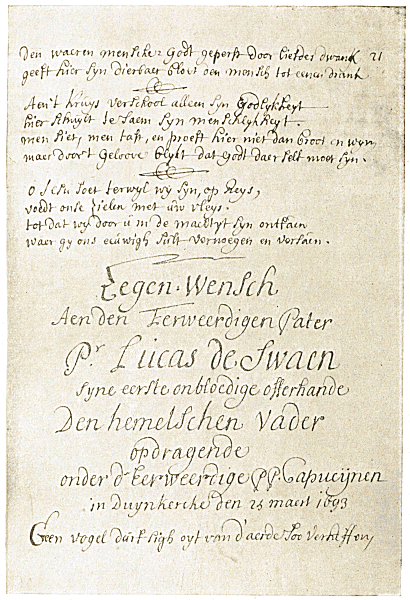 Den waeren menschen Godt geperst door liefdes dwank 21
geeft hier syn dierbaer bloet den mensch tot eenen drank
Aen't Kruys verschool alleen syn Godlykheyt
hier schuylt te saem syn menschlykheyt.
men siet, men tast, en proeft hier niet dan broot en wyn,
maer door't Geloove blykt dat Godt daer selt moet syn.
O Jesu soet terwyl wy syn, op Reys,
voedt onse Zielen met uw vleys.
tot dat wy door u in de machtyt syn ontfaen
waer gy ons eeuwigh sult vernoegen en versaen.
Zegen-Wensch
Aen den Eerweerdigen Pater
Pr. Lucas de Swaen
syne eerste onbloedige offerhande
Den hemelschen Vader
opdragende
onder d'Eerweerdige P.P. Capucijnen
in Duynkercke den 25 maert 1693
Geen vogel durft sigh oyt van d'aerde soo